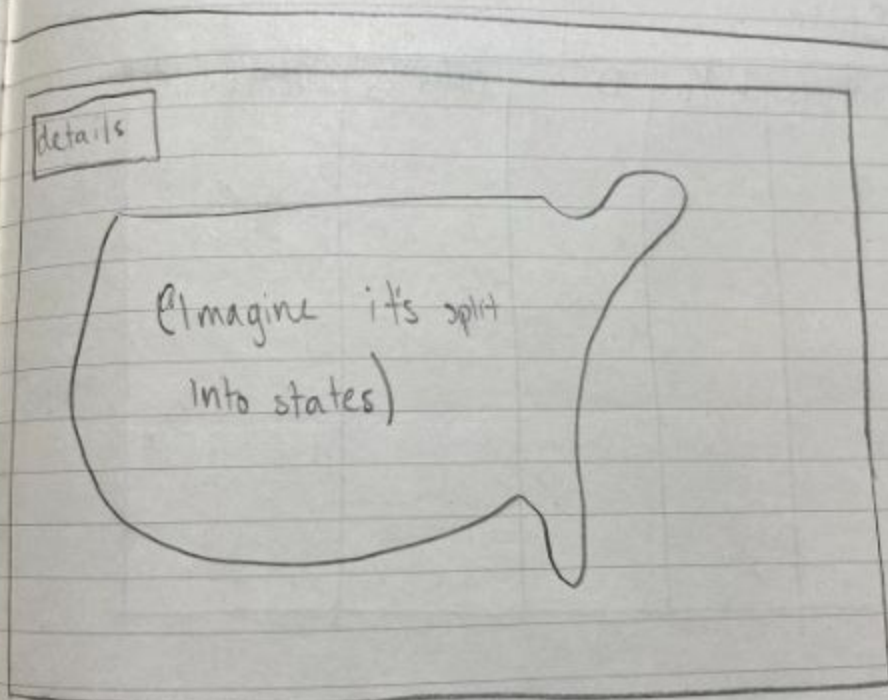 details
(Imagine it's split
into states)